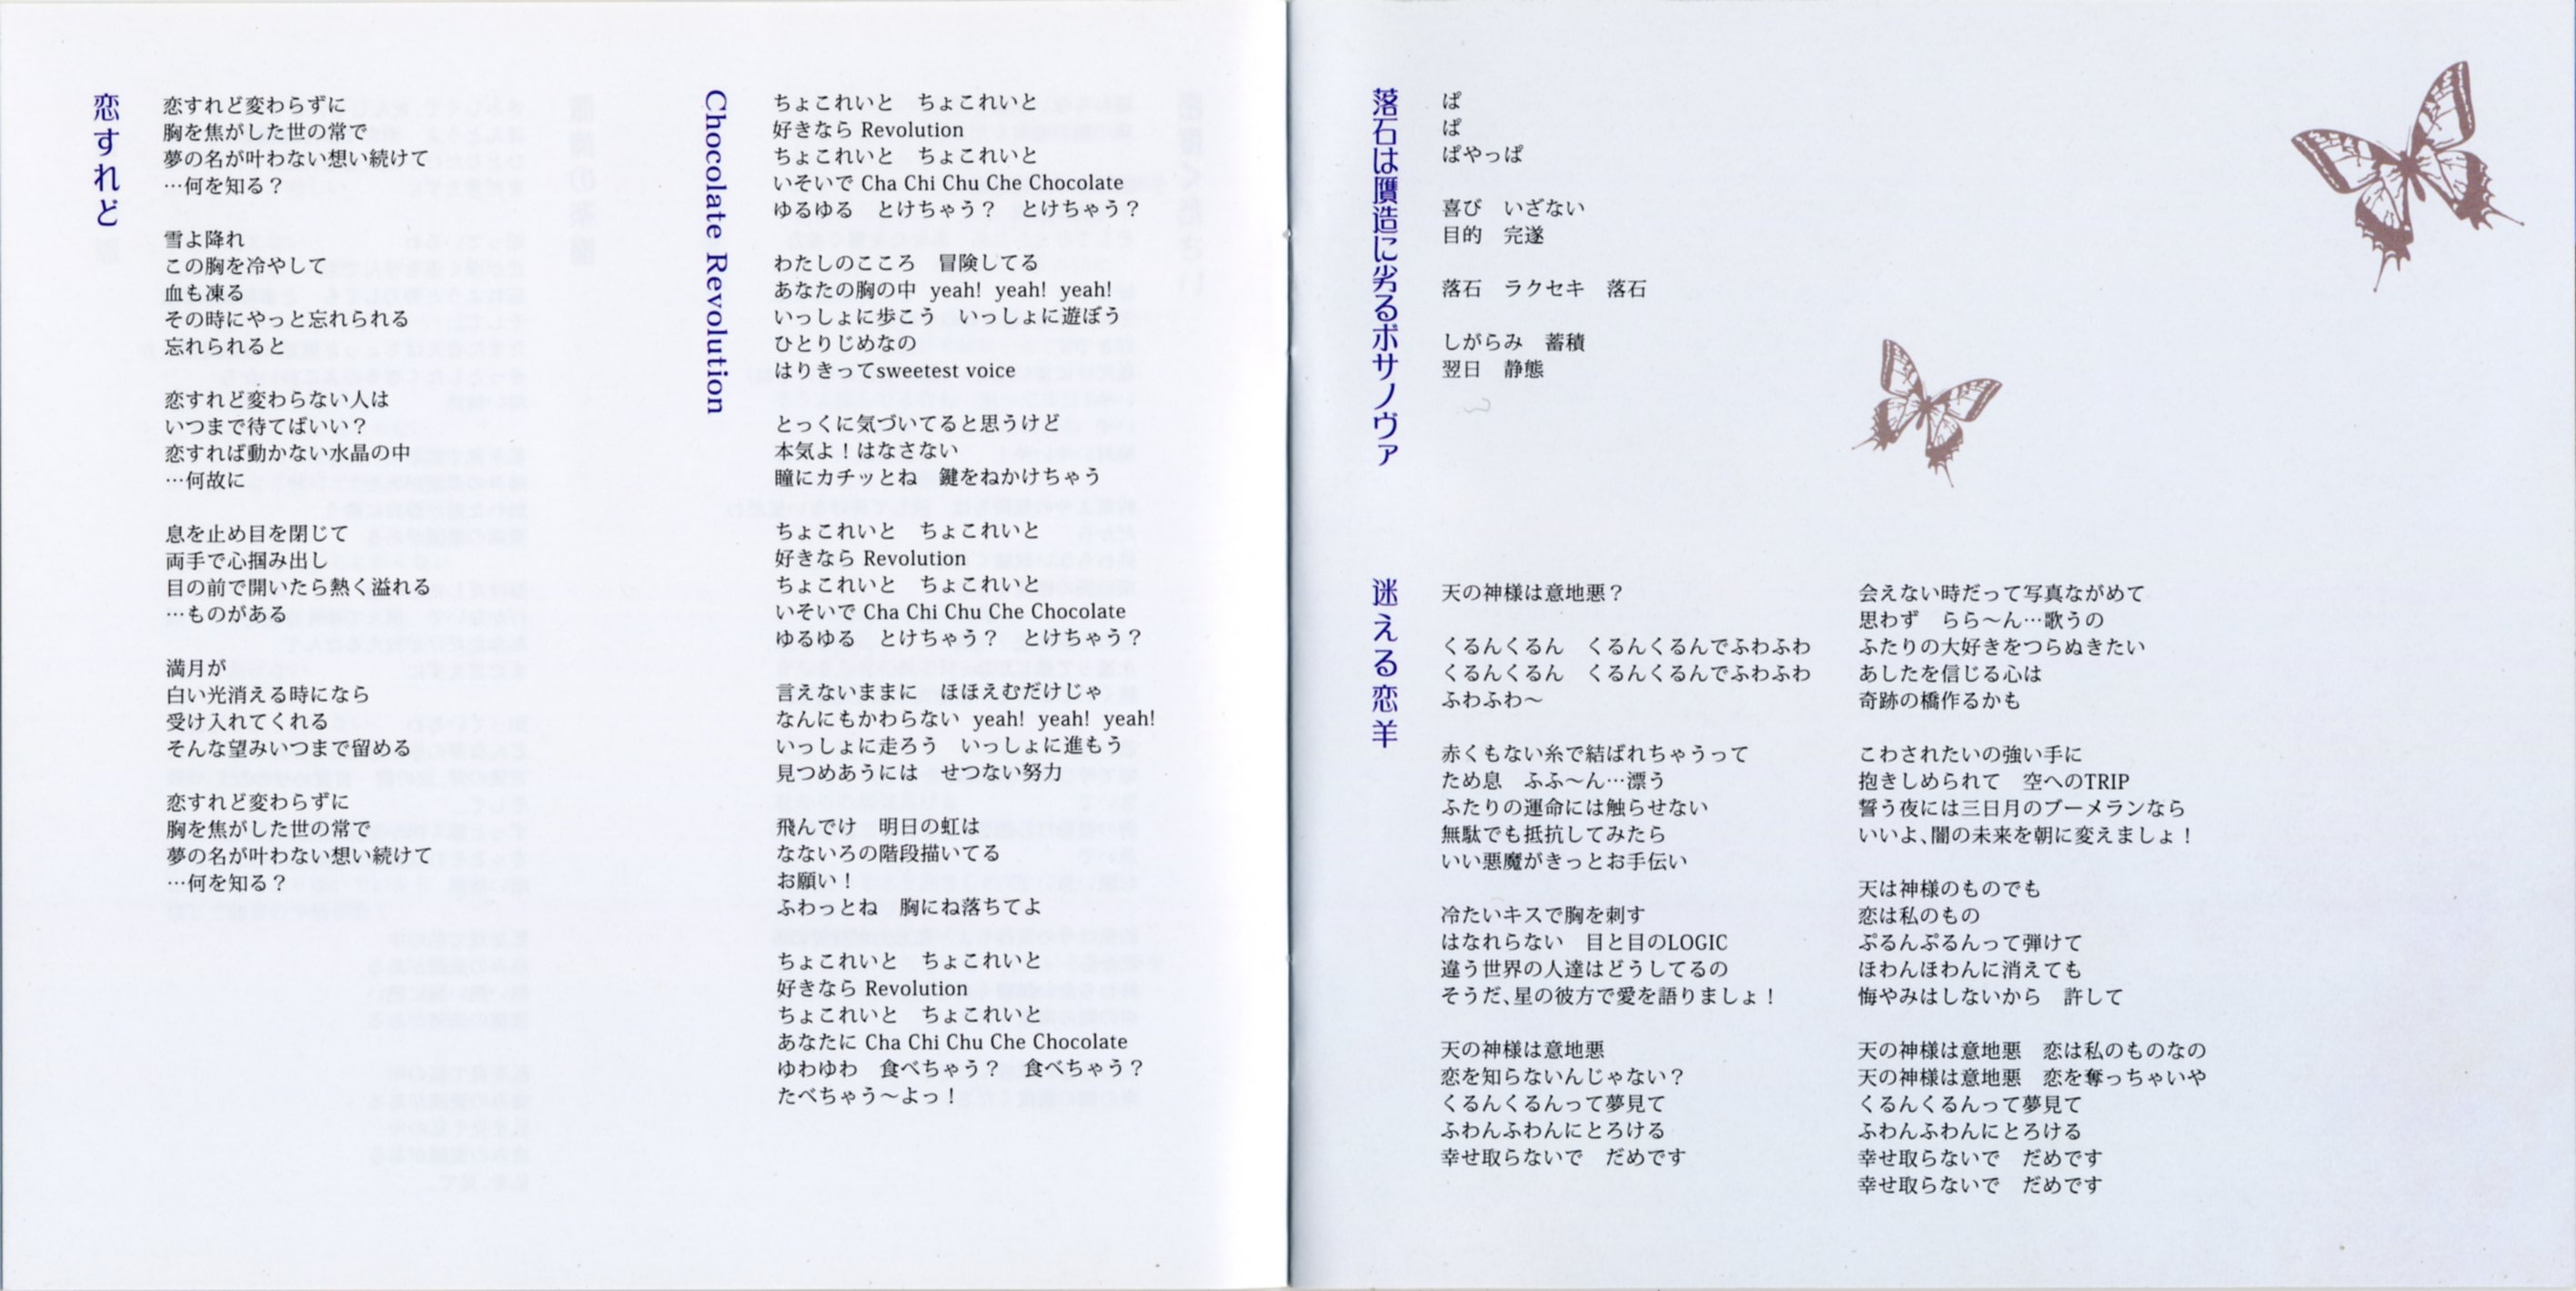 恋すれど
恋すれど変わらずに
胸を焦がした世の常で
夢の名が叶わない想い続けて
…何を知る？
雪よ降れ
この胸を冷やして
血も凍る
その時にやっと忘れられる
忘れられると
恋すれど変わらない人は
いつまで待てばいい？
恋すれば動かない水晶の中
…何故に
息を止め目を閉じて
両手で心掴み出し
目の前で開いたら熱く溢れる
…ものがある
満月が
白い光消える時になら
受け入れてくれる
そんな望みいつまで留める
恋すれど変わらずに
胸を焦がした世の常で
夢の名が叶わない想い続けて
…何を知る？
Chocolate Revolution
ちょこれいと　ちょこれいと
好きなら Revolution
ちょこれいと　ちょこれいと
いそいで Cha Chi Chu Che Chocolate
ゆるゆる　とけちゃう？　とけちゃう？
わたしのこころ　冒険してる
あなたの胸の中 yeah! yeah! yeah!
いっしょに歩こう　いっしょに遊ぼう
ひとりじめなの
はりきってsweetest voice
とっくに気づいてると思うけど
本気よ！はなさない
瞳にカチッとね　鍵をねかけちゃう
ちょこれいと　ちょこれいと
好きなら Revolution
ちょこれいと　ちょこれいと
いそいで Cha Chi Chu Che Chocolate
ゆるゆる　とけちゃう？　とけちゃう？
言えないままに　ほほえむだけじゃ
なんにもかわらない yeah! yeah! yeah!
いっしょに走ろう　いっしょに進もう
見つめあうには　せつない努力
飛んでけ　明日の虹は
なないろの階段描いてる
お願い！
ふわっとね　胸にね落ちてよ
ちょこれいと　ちょこれいと
好きなら Revolution
ちょこれいと　ちょこれいと
あなたに Cha Chi Chu Che Chocolate
ゆわゆわ　食べちゃう？　食べちゃう？
たべちゃう～よっ！
落石は贋造に劣るボサノヴァ
ぱ
ぱ
ぱやっぱ
喜び　いざない
目的　完遂
落石　ラクセキ　落石
しがらみ　蓄積
翌日　静態
迷える恋羊
天の神様は意地悪？
くるんくるん　くるんくるんでふわふわ
くるんくるん　くるんくるんでふわふわ
ふわふわ～
赤くもない糸で結ばれちゃうって
ため息　ふふ～ん…漂う
ふたりの運命には触らせない
無駄でも抵抗してみたら
いい悪魔がきっとお手伝い
冷たいキスで胸を刺す
はなれらない　目と目のLOGIC
違う世界の人達はどうしてるの
そうだ、星の彼方で愛を語りましょ！
天の神様は意地悪
恋を知らないんじゃない？
くるんくるんって夢見て
ふわんふわんにとろける
幸せ取らないで　だめです
会えない時だって写真ながめて
思わず　らら～ん…歌うの
ふたりの大好きをつらぬきたい
あしたを信じる心は
奇跡の橋作るかも
こわされたいの強い手に
抱きしめられて　空へのTRIP
誓う夜には三日月のブーメランなら
いいよ、闇の未来を朝に変えましょ！
天は神様のものでも
恋は私のもの
ぷるんぷるんって弾けて
ほわんほわんに消えても
悔やみはしないから　許して
天の神様は意地悪　恋は私のものなの
天の神様は意地悪　恋を奪っちゃいや
くるんくるんって夢見て
ふわんふわんにとろける
幸せ取らないで　だめです
幸せ取らないで　だめです